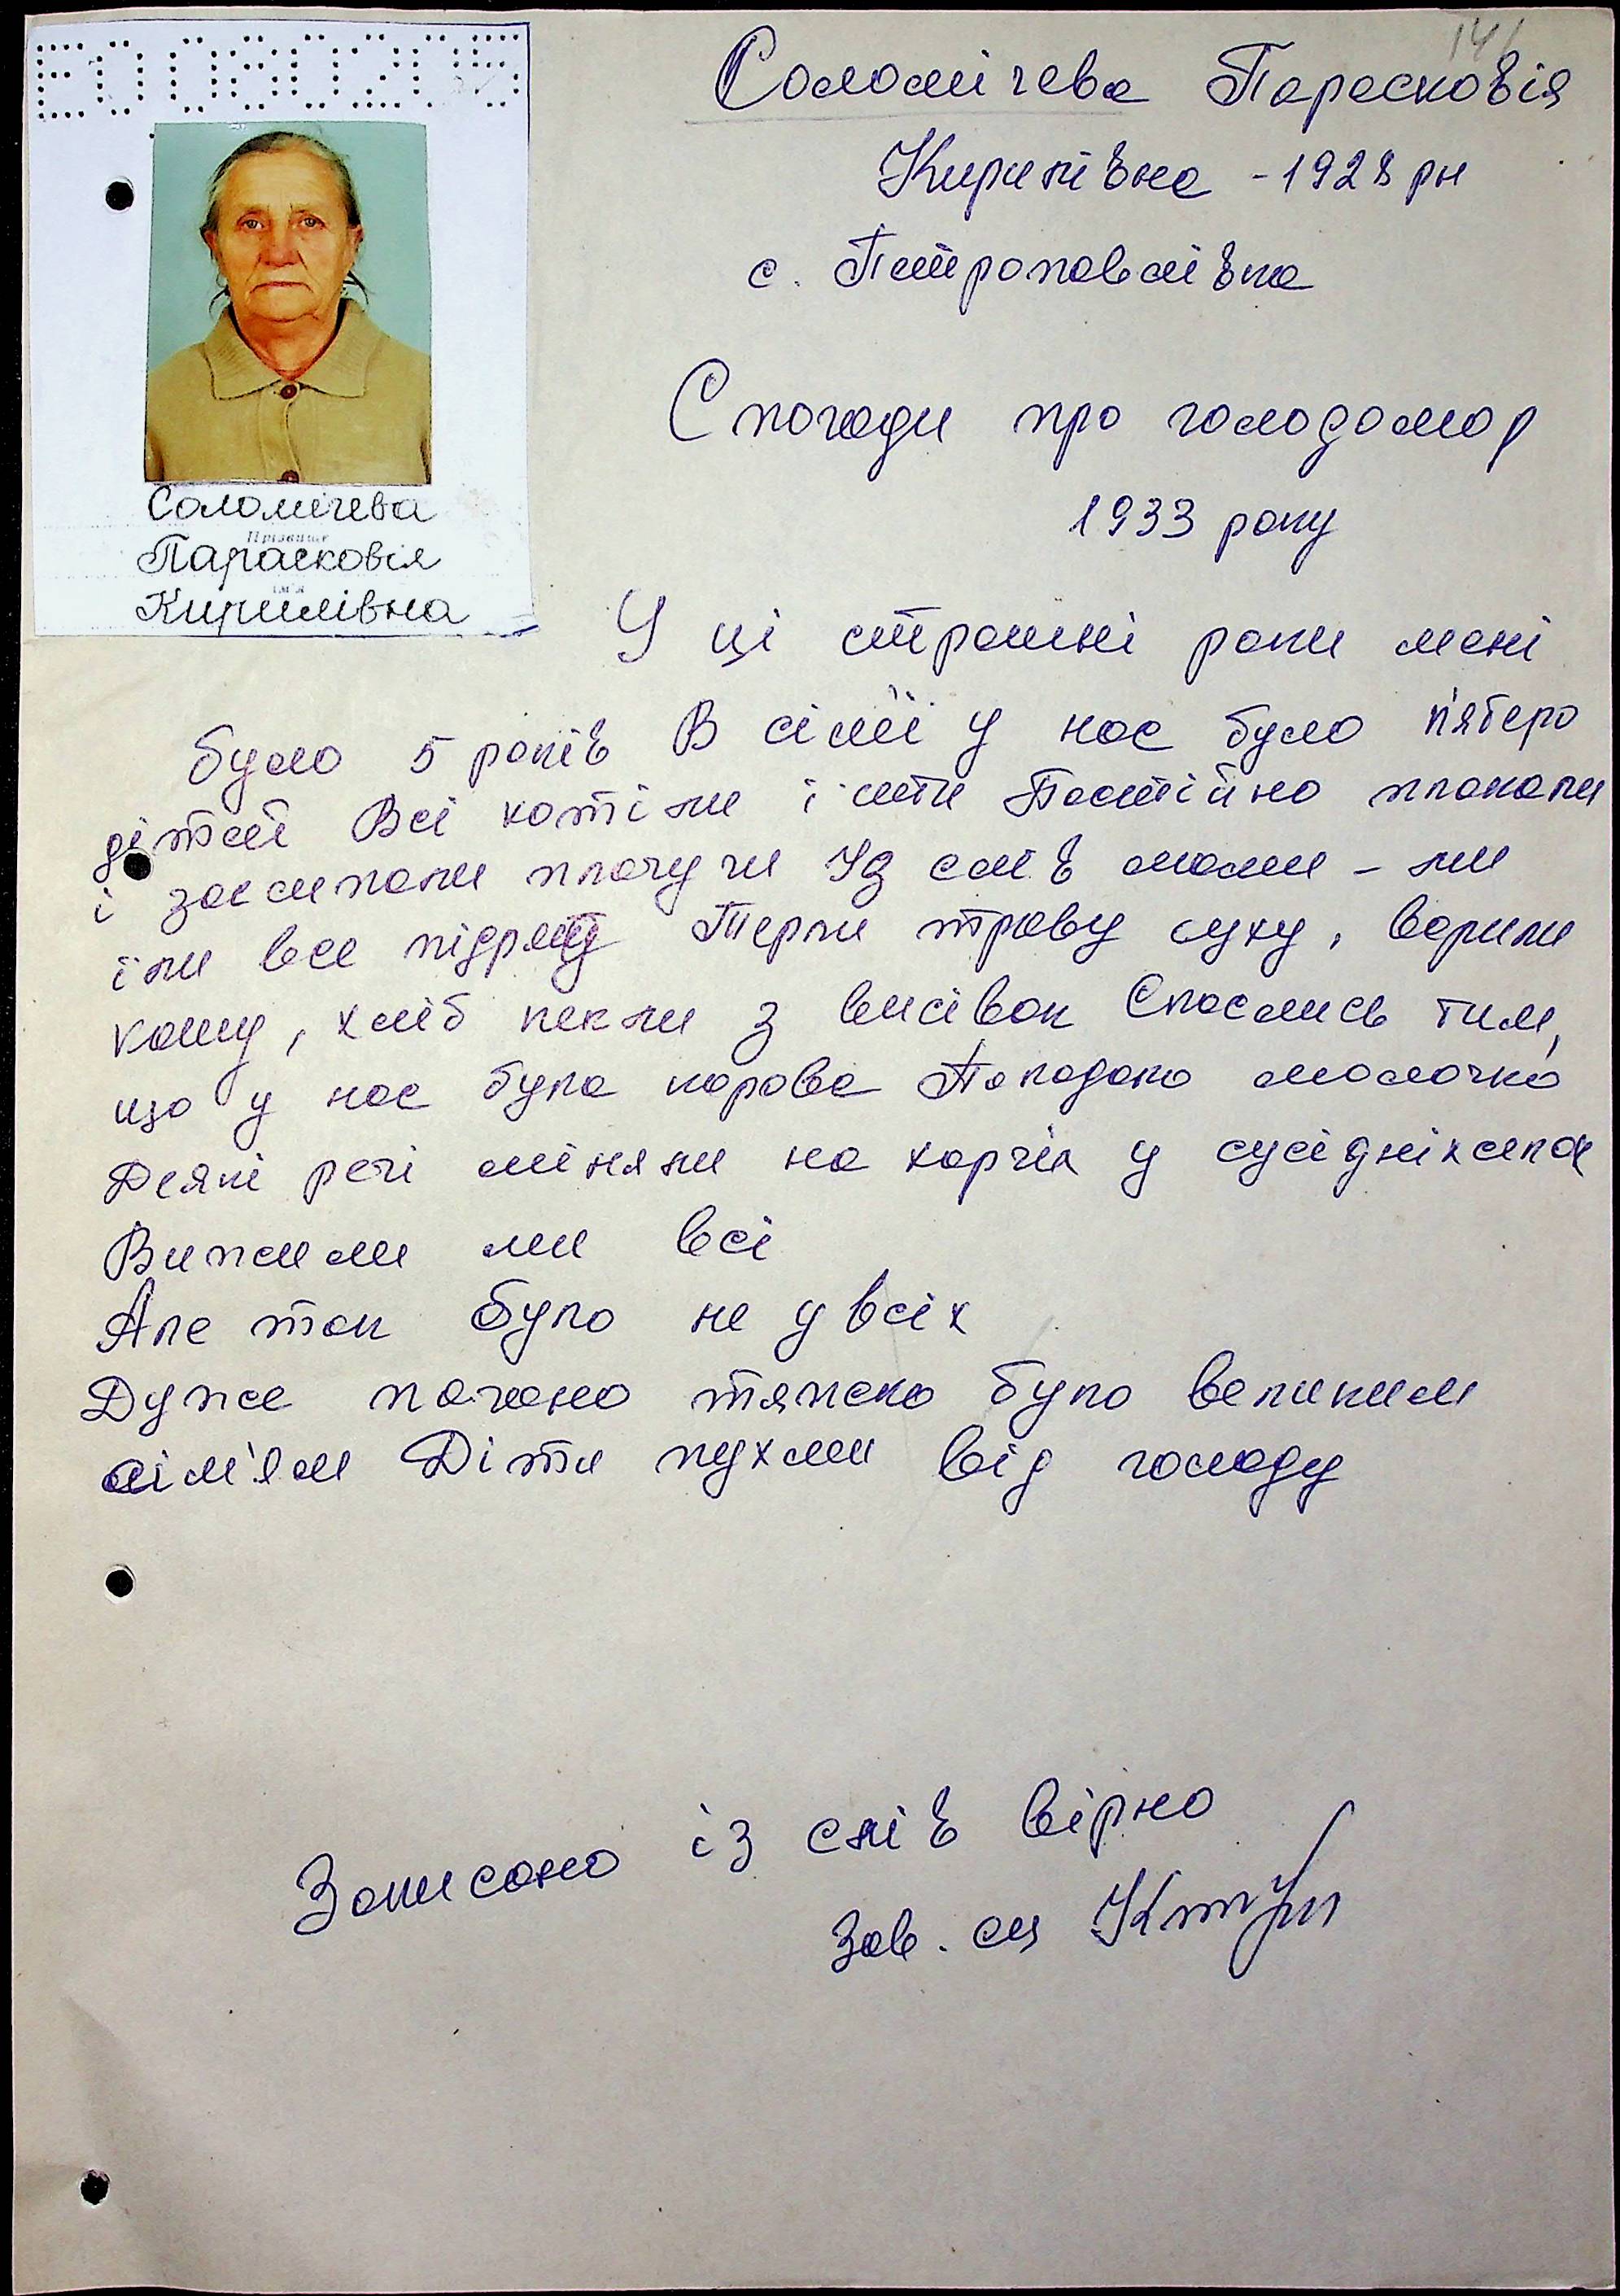 141
Соломічева Парасковія
Кирилівна - 1928 рн
с. Петропавлівка
ЕО 080275
Соломічева
Прізвище
Парасковія
ім'я
Кирилівна
Спогади про голодомор
1933 року
У ці страшні роки мені
було 5 років В сім'ї у нас було п'ятеро
дітей Всі хотіли їсти Постійно плакали
і засипали плачучи Із слів мами - ми
їли все підряд Терли траву суху, варили
кашу, хліб пекли з висівок Спаслись тим,
що у нас була корова Попадало молочко
Деякі речі міняли на харчі у сусідніх селах
Вижили ми всі
Але так було не у всіх
Дуже погано тяжко було великим
сім'ям Діти пухли від голоду
Записано із слів вірно
Зав.